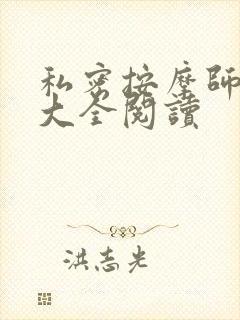 私密按摩師
大全閱讀
洪志光